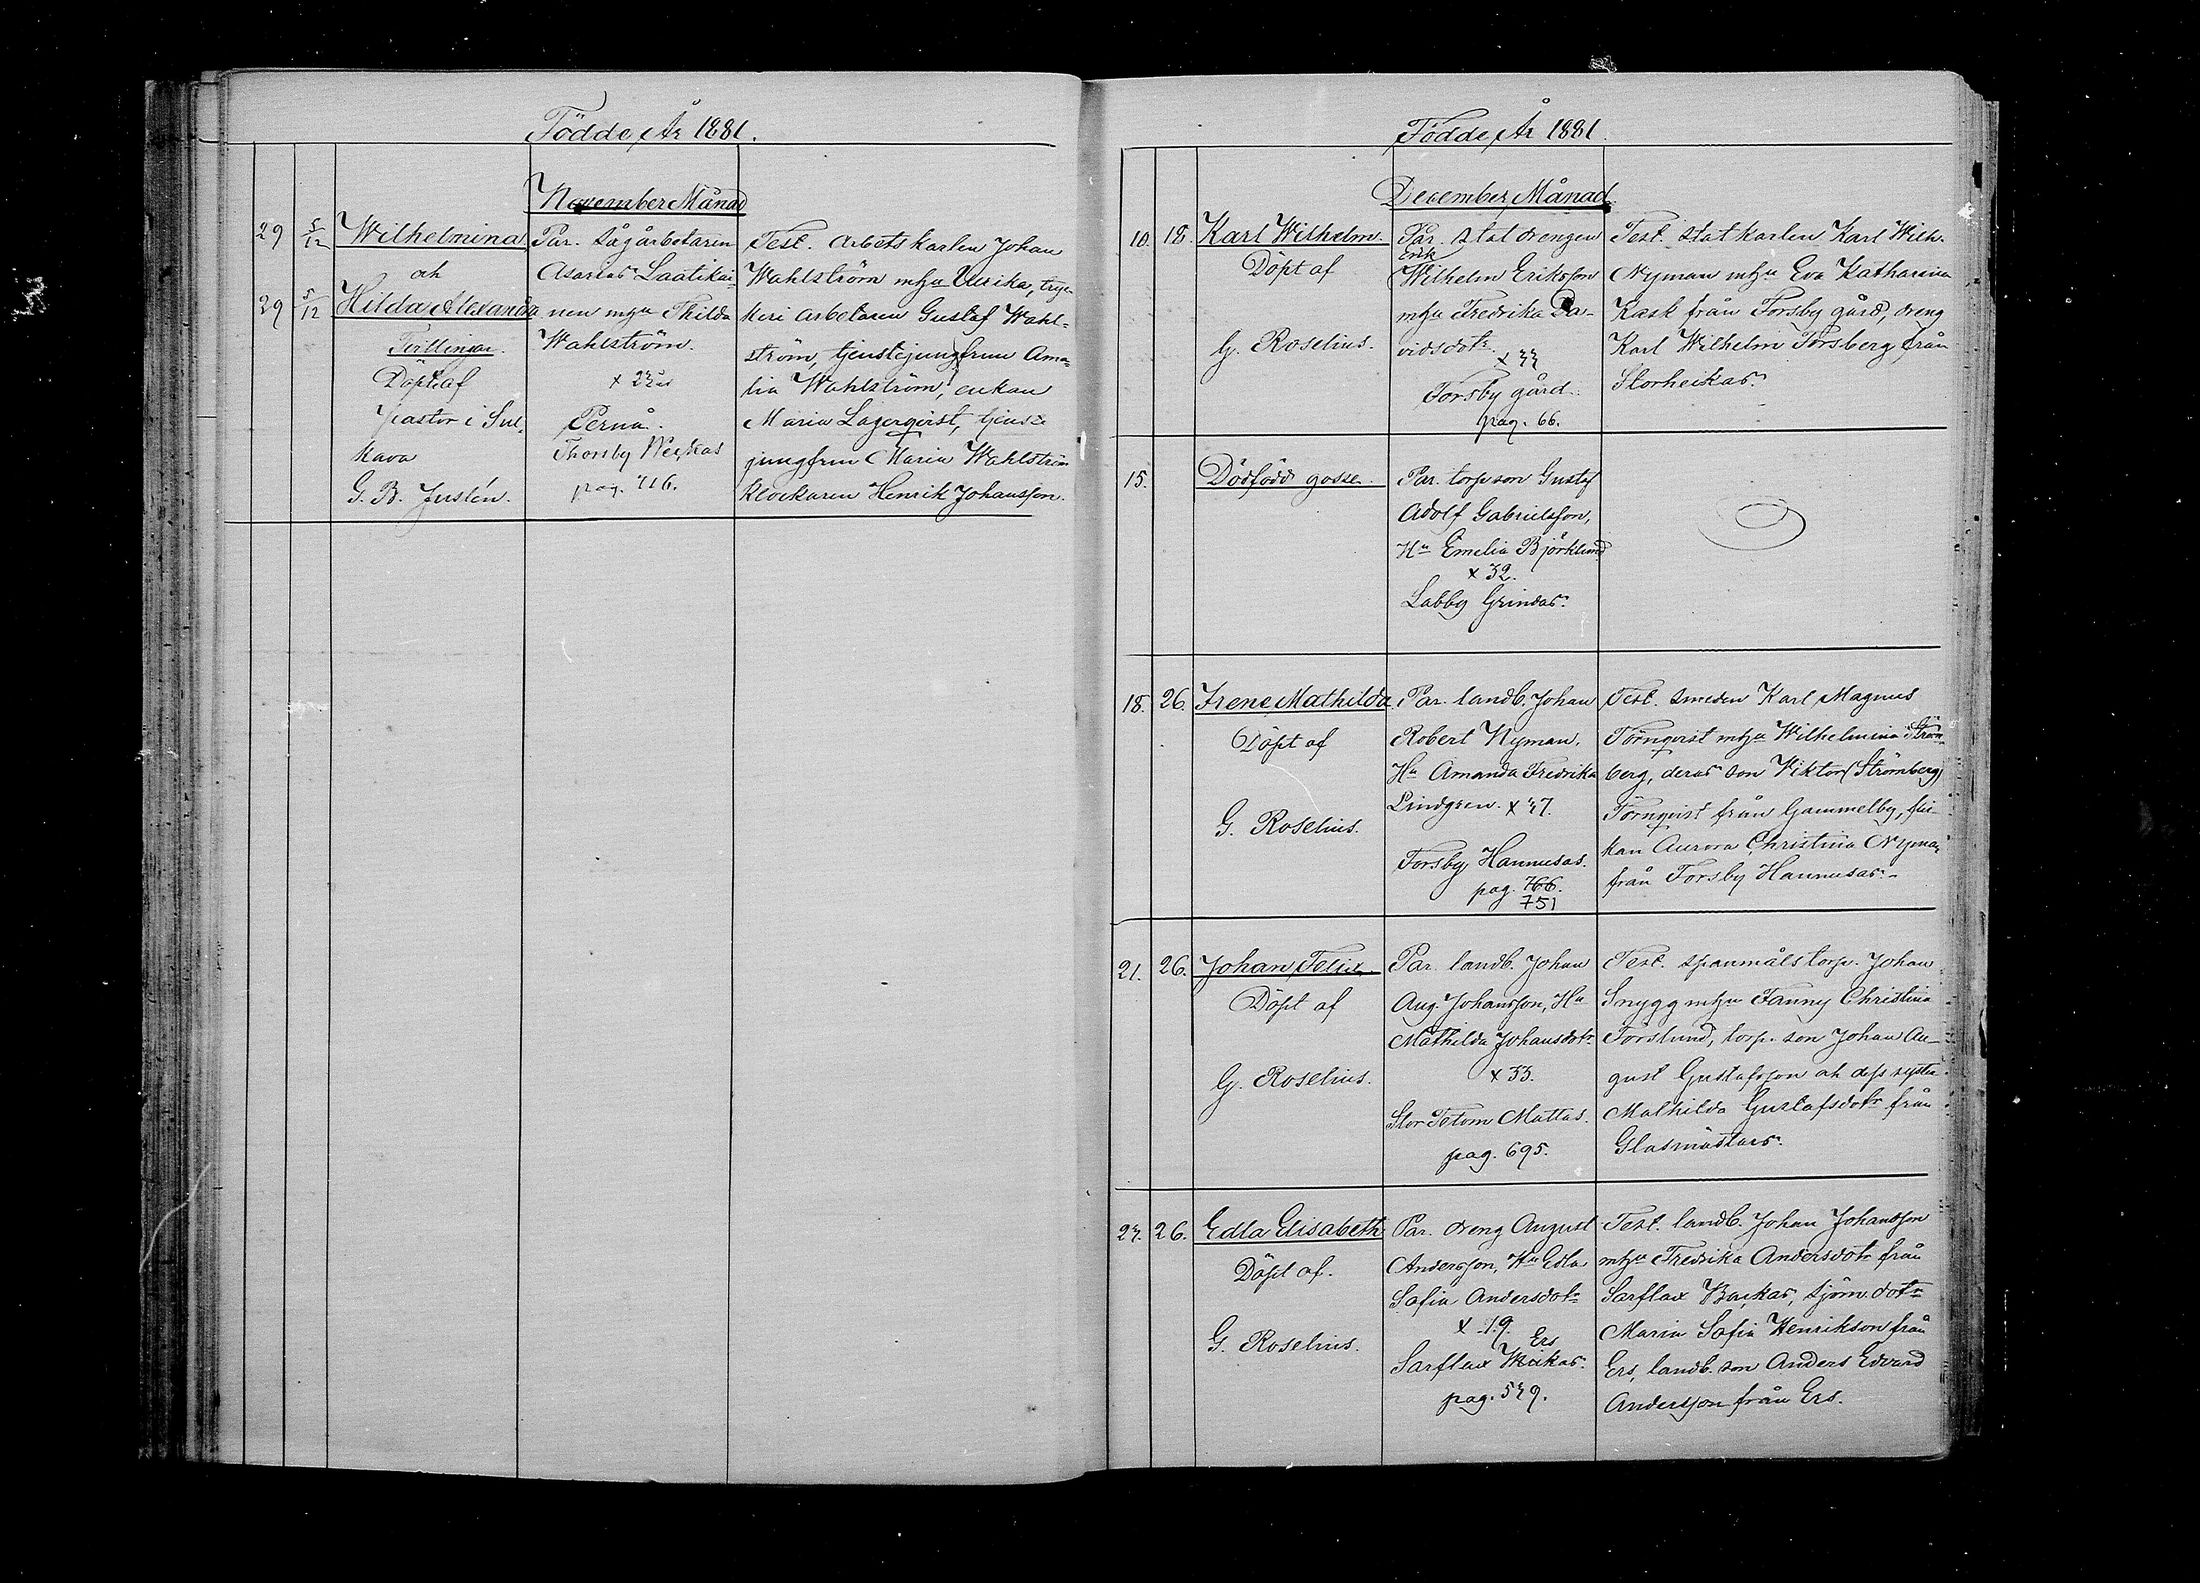 Födde År 1881.
November Månad
29 5/12 Wilhelmina
och
29 5/12 Hilda Alexandra
Tvillingar.
Döpt af
pastor i Sul-
kava
G. B. Juslén.
Par. sågarbetaren
Asarias Laatikai-
nen mhu Thilda
Wahlström.
Pernå.
Thorsby Weckas
pag. 716.
Test. arbetskarlen Johan
Wahlström mhu Ulrika, tryc-
keri arbetaren Gustaf Wahl-
ström, tjenstejungfrun Ama-
lia Wahlström, enkan
Maria Lagerqvist, tjenste
jungfrun Maria Wahlström
klockaren Henrik Johansson.
Födde År 1881.
December Månad
10. 18. Karl Wilhelm.
Döpt af
G. Roselius.
Par. statdrengen
Erik
Wilhelm Eriksson
mhu Fredrika Da-
vidsdotr.
x 33
Forsby gård.
pag. 66.
Test. statkarlen Karl Wilh.
Nyman mhu Eva Katharina
Kask från Forsby gård, dreng
Karl Wilhelm Forsberg från
Storheikas.
15. Dödfödd gosse.
Par. torp. son Gustaf
Adolf Gabrielsson,
Hu Emelia Björklund
x 32.
Labby Grindas.
18. 26. Irene Mathilda.
Döpt af
G. Roselius.
Par. landb. Johan
Robert Nyman.
Hu Amanda Fredrika
Lindgren. x 37.
Forsby Hannusas.
pag. 766.
751
Test. smeden Karl Magnus
Törnqvist mhu Wilhelmina Ström-
berg, deras son Viktor (Strömberg)
Törnqvist från Gammelby, flic-
kan Aurora Christina Nyman
från Forsby Hannusas.
21. 26. Johan Felix.
Döpt af
G. Roselius.
Par. landb. Johan
Aug. Johansson, Hu
Mathilda Johansdotr.
x 33.
Stor Tetom Mattas.
pag. 695.
Test. spanmålstorp. Johan
Snygg mhu Fanny Christina
Forslund, torp. son Johan Au-
gust Gustafsson och dess syster
Mathilda Gustafsdotr från
Glasmästars.
23. 26. Edla Elisabeth
Döpt af.
G. Roselius.
Par. dreng August
Andersson, Hu Edla
Sofia Andersdotr
x 19.
Ers
Sarflax
pag. 539.
Test. landb. Johan Johansson
mhu Fredrika Andersdotr från
Sarflax Backas, sjöm. dotr
Maria Sofia Henrikson från
Ers, landb. son Anders Edvard
Andersson från Ers.